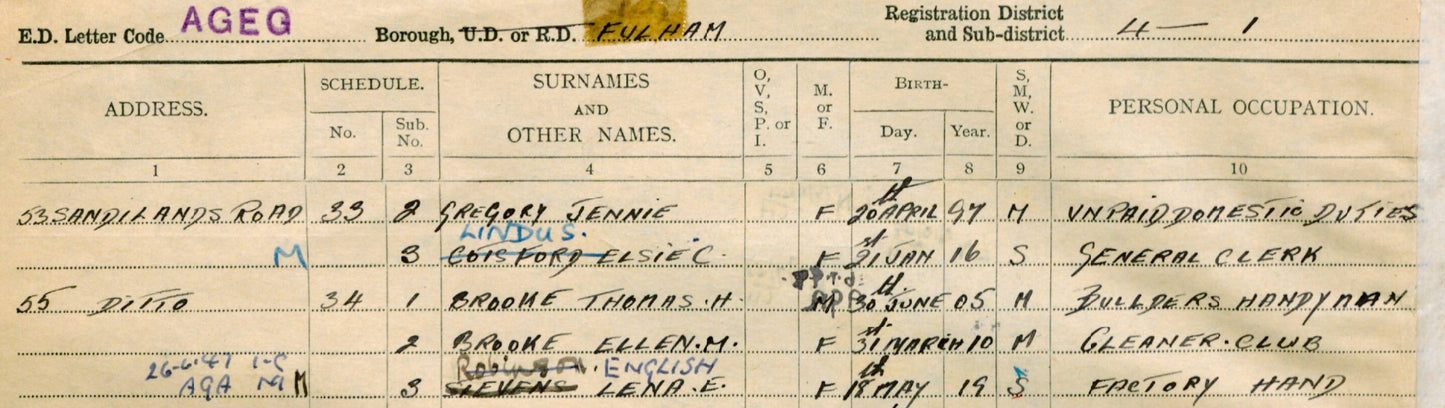 E.D. Letter Code AGEG Borough, U.D. or R.D. FULHAM Registration District and Sub-district 4 — 1
ADDRESS. SCHEDULE. No. Sub. No. SURNAMES AND OTHER NAMES. O, V, S, P. or I. M. or F. BIRTH- Day. Year. S, M, W. or D. PERSONAL OCCUPATION.
1 2 3 4 5 6 7 8 9 10
53 SANDILANDS ROAD 33 2 GREGORY JENNIE F 20th APRIL 97 M UNPAID DOMESTIC DUTIES
LINDUS.
M 3 COTSFORD ELSIE C. F 21st JAN 16 S GENERAL CLERK
55 DITTO 34 1 BROOKE THOMAS. H. M 30th JUNE 05 M BUILDERS HANDYMAN
2 BROOKE ELLEN. M. F 31st MARCH 10 M CLEANER. CLUB
26-6-47 Robinson. ENGLISH
AGA M 3 STEVENS LENA. E. F 18th MAY 19 S FACTORY HAND